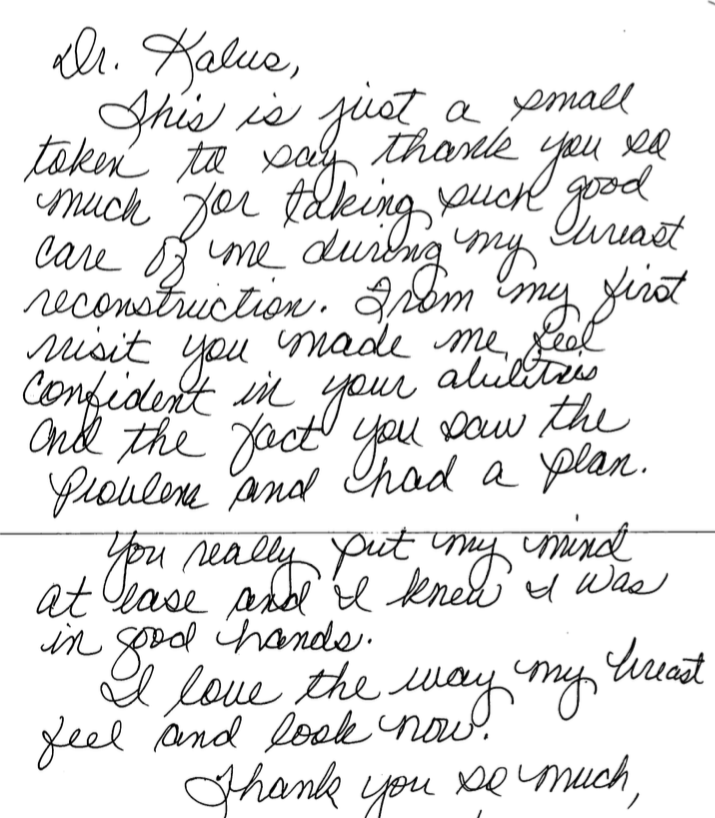 Dr. Kalus,
This is just a small
token to say thank you so
much for taking such good
care of me during my breast
reconstruction. From my first
visit you made me feel
confident in your abilities
and the fact you saw the
problem and had a plan.
You really put my mind
at ease and I knew I was
in good hands.
I love the way my breast
feel and look now.
Thank you so much,